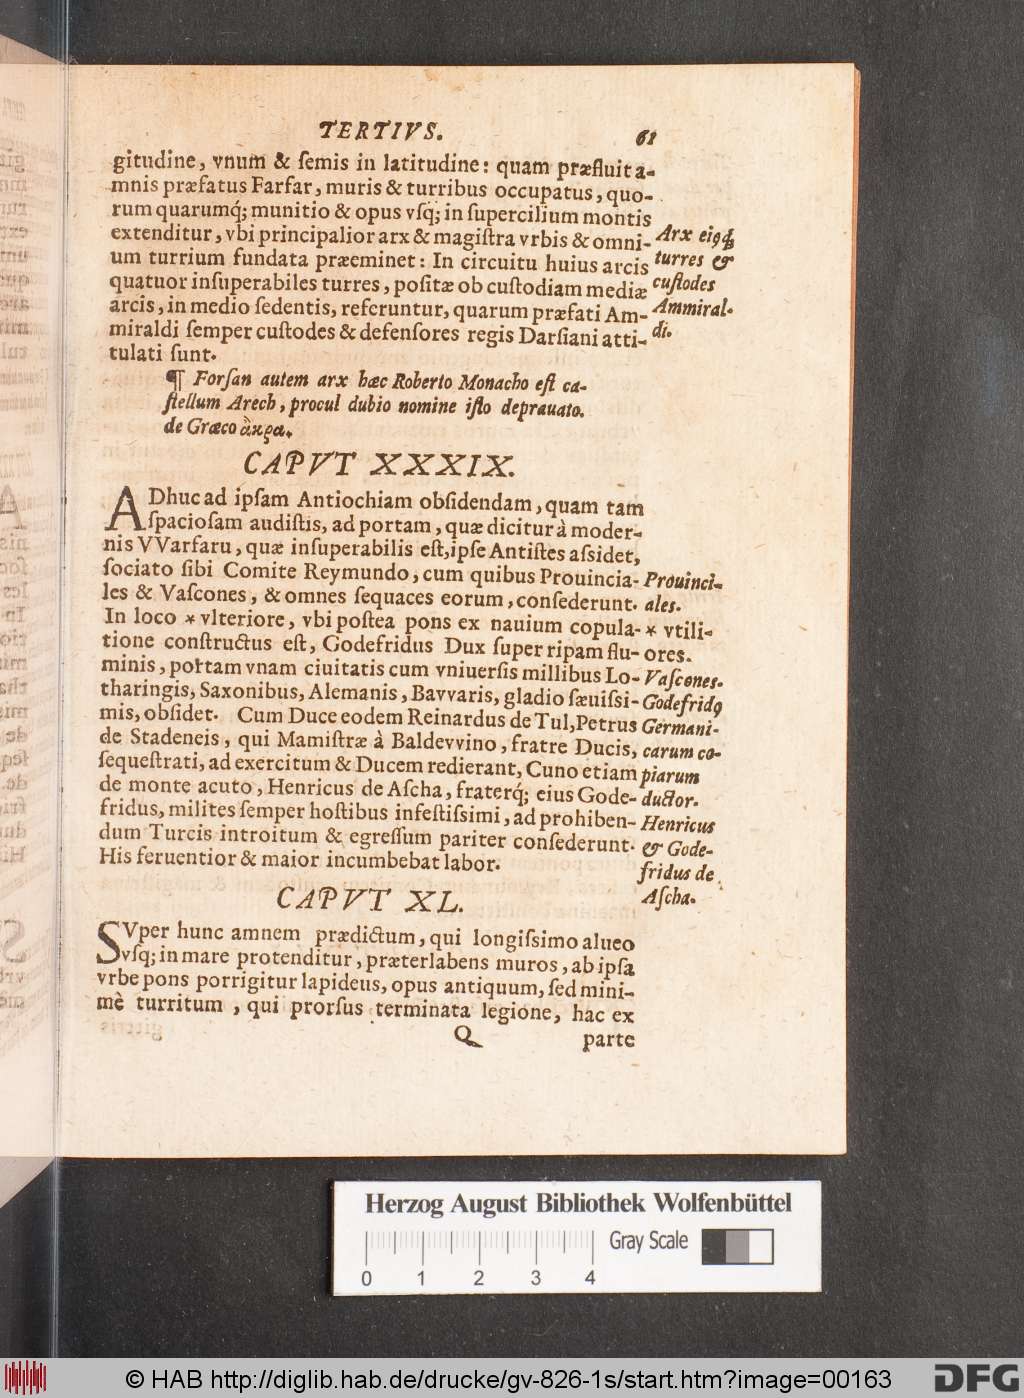 TERTIVS. 61
gitudine, vnum & ſemis in latitudine: quam præfluit a-
mnis præfatus Farfar, muris & turribus occupatus, quo-
rum quarumq́; munitio & opus vſq; in ſupercilium montis
extenditur, vbi principalior arx & magiſtra vrbis & omni-
um turrium fundata præeminet: In circuitu huius arcis
quatuor inſuperabiles turres, poſitæ ob cuſtodiam mediæ
arcis, in medio ſedentis, referuntur, quarum præfati Am-
miraldi ſemper cuſtodes & defenſores regis Darſiani atti-
tulati ſunt.
Arx eiꝰq́;
turres &
cuſtodes
Ammiral-
di.
¶ Forſan autem arx hæc Roberto Monacho eſt ca-
ſtellum Arech, procul dubio nomine iſto deprauato.
de Græco ἄκρα.
CAPVT XXXIX.
ADhuc ad ipſam Antiochiam obſidendam, quam tam
ſpacioſam audiſtis, ad portam, quæ dicitur à moder-
nis VVarfaru, quæ inſuperabilis eſt, ipſe Antiſtes aſsidet,
ſociato ſibi Comite Reymundo, cum quibus Prouincia-
les & Vaſcones, & omnes ſequaces eorum, conſederunt.
In loco * vlteriore, vbi poſtea pons ex nauium copula-
tione conſtructus eſt, Godefridus Dux ſuper ripam flu-
minis, portam vnam ciuitatis cum vniuerſis millibus Lo-
tharingis, Saxonibus, Alemanis, Bavvaris, gladio ſæuiſsi-
mis, obſidet. Cum Duce eodem Reinardus de Tul, Petrus
de Stadeneis, qui Mamiſtræ à Baldevvino, fratre Ducis,
ſequeſtrati, ad exercitum & Ducem redierant, Cuno etiam
de monte acuto, Henricus de Aſcha, fraterq́; eius Gode-
fridus, milites ſemper hoſtibus infeſtiſsimi, ad prohiben-
dum Turcis introitum & egreſſum pariter conſederunt.
His feruentior & maior incumbebat labor.
Prouinci-
ales.
* vtili-
ores.
Vaſcones.
Godefridꝰ
Germani-
carum co-
piarum
ductor.
Henricus
& Gode-
fridus de
Aſcha.
CAPVT XL.
SVper hunc amnem prædictum, qui longiſsimo alueo
vſq; in mare protenditur, præterlabens muros, ab ipſa
vrbe pons porrigitur lapideus, opus antiquum, ſed mini-
mè turritum, qui prorſus terminata legione, hac ex
Q parte
Herzog August Bibliothek Wolfenbüttel
Gray Scale
0 1 2 3 4
© HAB http://diglib.hab.de/drucke/gv-826-1s/start.htm?image=00163
DFG